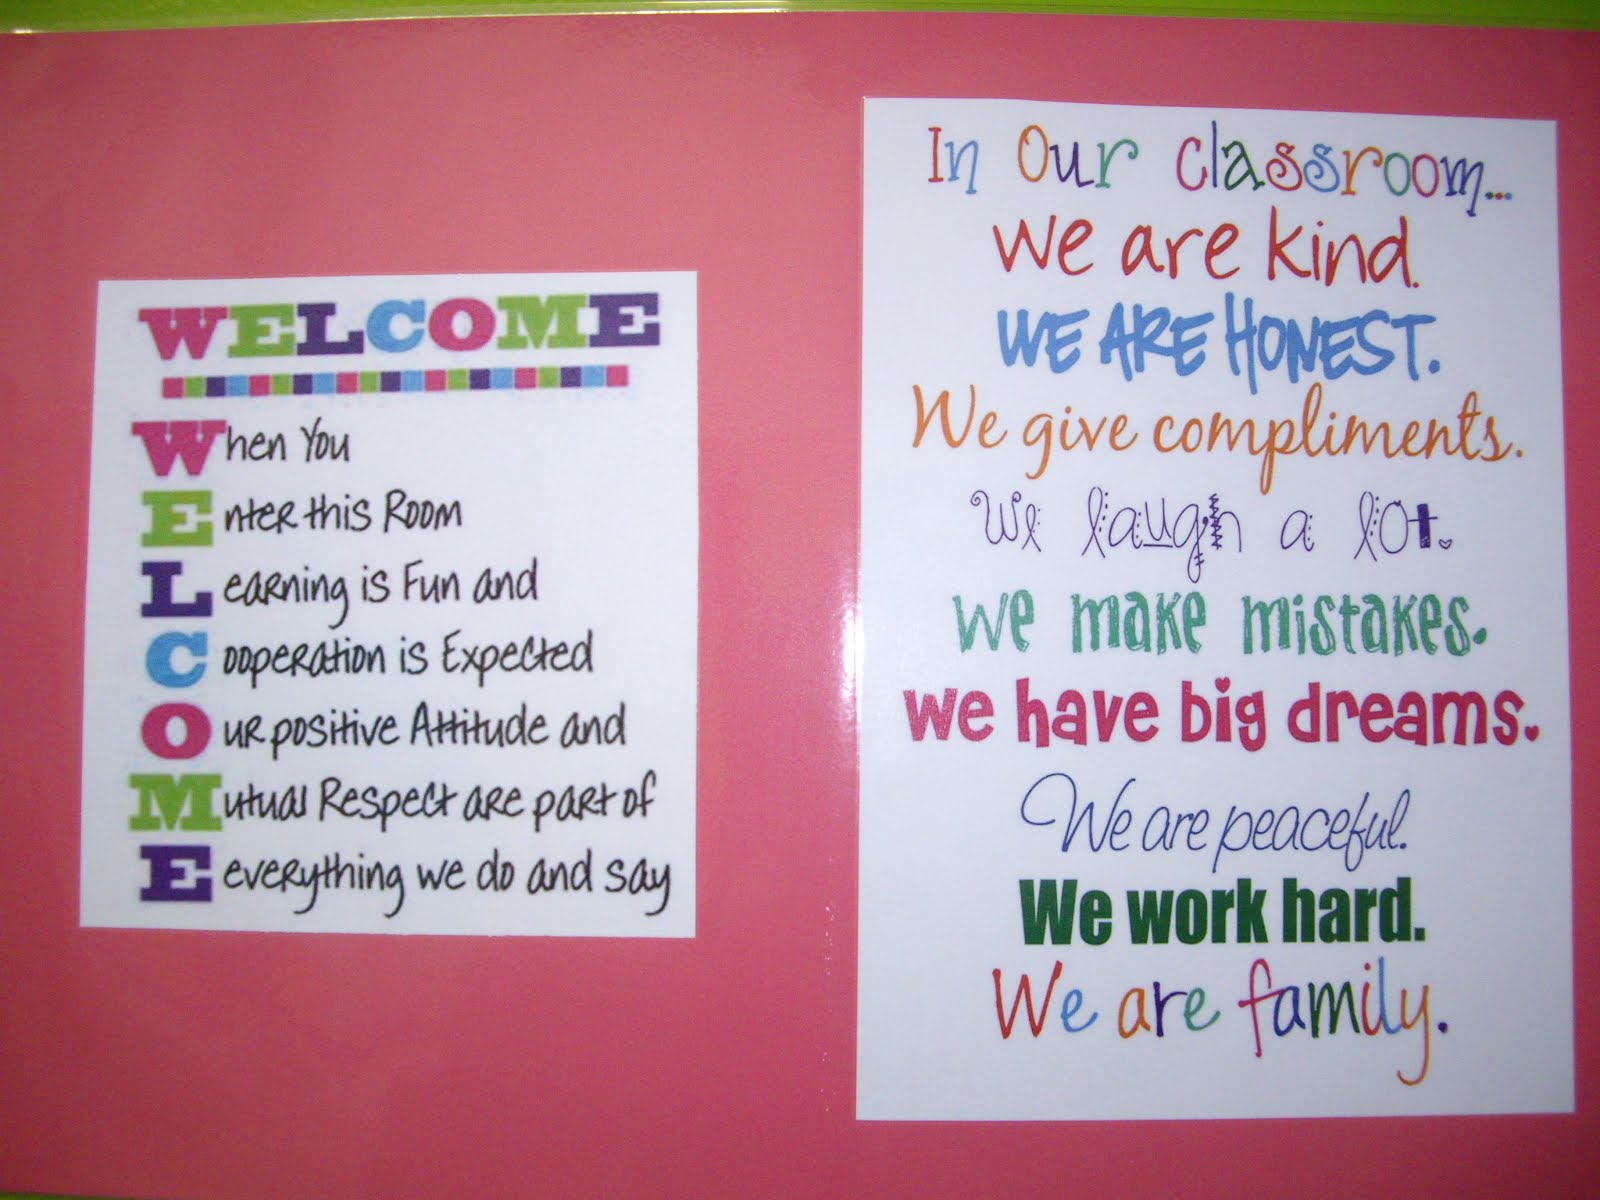 WELCOME
When You
Enter this Room
Learning is Fun and
Cooperation is Expected
Our positive Attitude and
Mutual Respect are part of
Eeverything we do and say
In Our classroom...
We are kind.
WE ARE HONEST.
We give compliments.
We laugh a lot.
We make mistakes.
We have big dreams.
We are peaceful.
We work hard.
We are family.